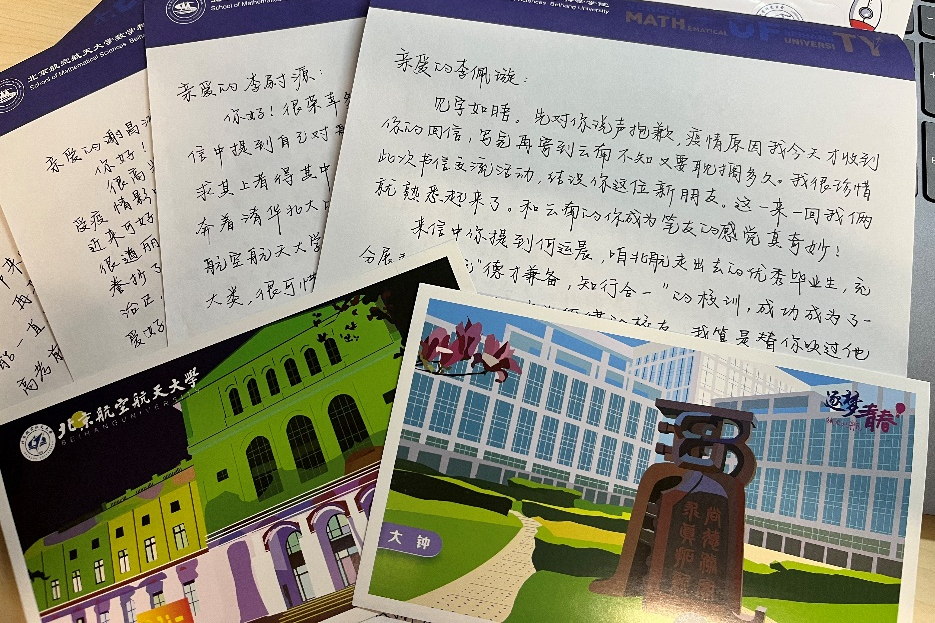 北京航空航天大学数学
School of Mathematical Sciences Beih
亲爱的谢昌
你好!
很高
受疫情影
近来可好
很遒丽
卷抄了
爱好
高考前
School of Mathema
亲爱的李尉源:
你好!很荣幸
信中提到自己对
求其上者得其中
奔着清华北大
航空航天大学
大类,很可惜
Sciences Beihang University
MATHEMATICAL OF UNIVERSITY
亲爱的李佩璇:
见字如晤。先对你说声抱歉,疫情原因我今天才收到
你的回信,写完再寄到云南不知又要耽搁多久。我很珍惜
此次书信交流活动,结识你这位新朋友。这一来一回我俩
就熟悉起来了。和云南的你成为笔友的感觉真奇妙!
来信中你提到何运晨,咱北航走出去的优秀毕业生,充
分展 "德才兼备,知行合一"的校训,成功成为了一
我算是替你吹过他
北京航空航天大學
BEIHANG UNIVERSITY
逐梦青春
大钟